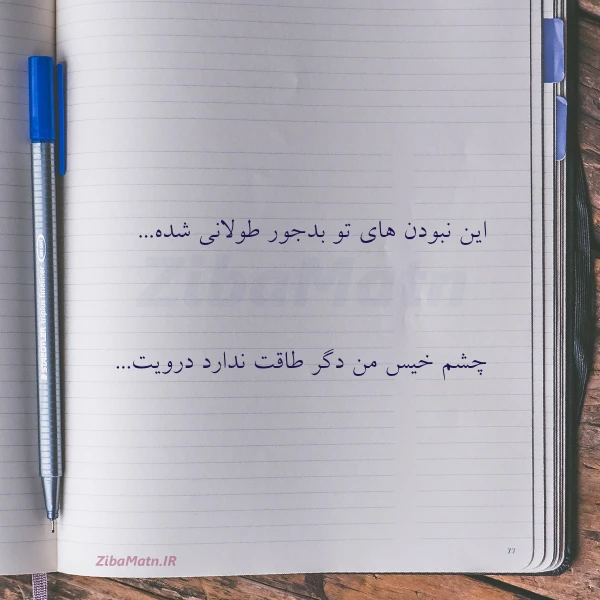 این نبودن های تو بدجور طولانی شده...
ZibaMatn
چشم خیس من دگر طاقت ندارد درویت...
ZibaMatn.IR
77